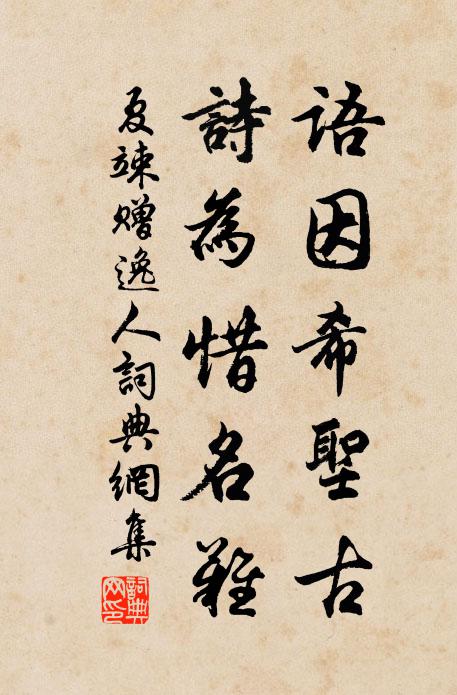 語因希聖古
詩為惜名難
夏竦贈逸人詞典網集
詞典
网印